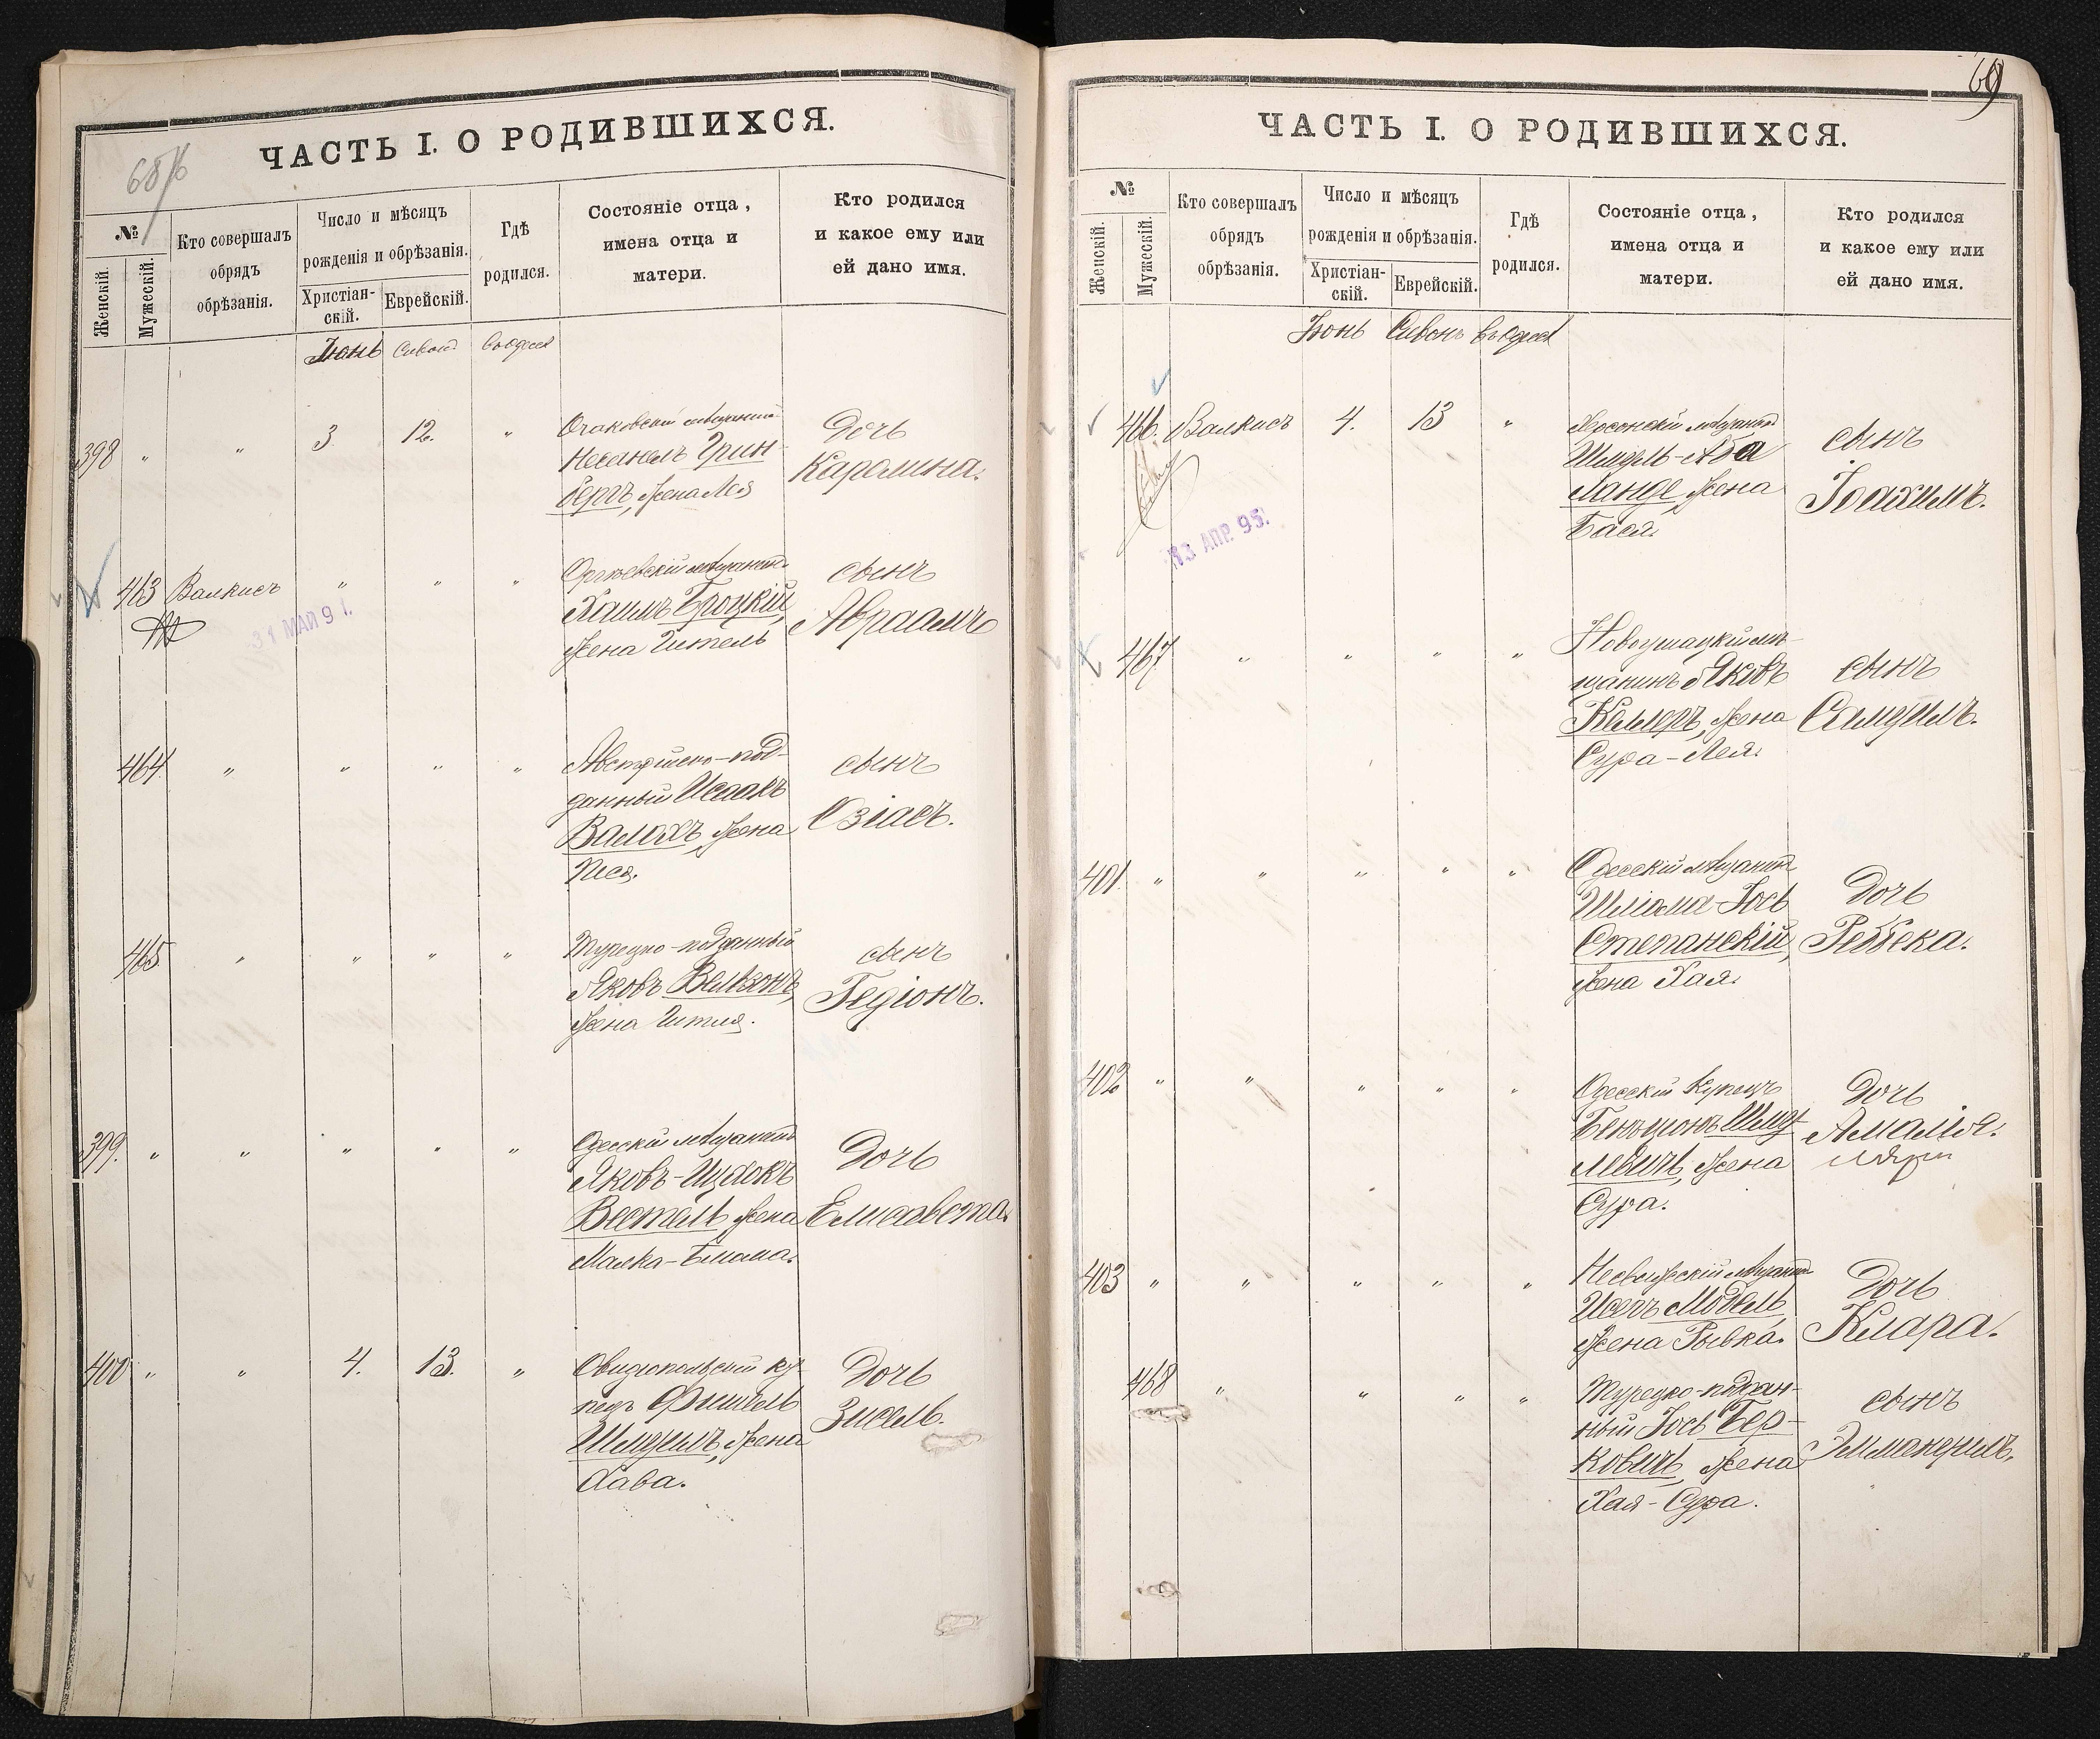 ЧАСТЬ I. О РОДИВШИХСЯ.
№
Женскій.
Мужескій.
Кто совершалъ
обрядъ
обрѣзанія.
Число и мѣсяцъ
рожденія и обрѣзанія.
Христіан-
скій.
Еврейскій.
Гдѣ
родился.
Состояніе отца,
имена отца и
матери.
Кто родился
и какое ему или
ей дано имя.
Іюнь Сивонъ въ Одессѣ
398 " " 3 12. "
Очаковскій мѣщанинъ
Несанелъ Грин-
бергъ, жена Лея
Дочь
Каролина.
463 Валкисъ " " "
31 МАЙ 9
Оргѣевскій мѣщанинъ
Хаимъ Троцкій,
жена Гитель
сынъ
Авраамъ
464 " " " "
Австрійско-под-
данный Исаакъ
Валахъ, жена
Песя.
сынъ
Озіасъ.
465 " " " "
Турецко-подданный
Яковъ Вельзонъ,
жена Гитля.
сынъ
Гедіонъ.
399. " " " " "
Одесскій мѣщанинъ
Яковъ-Ицхокъ
Вестель, жена
Малка-Блима.
Дочь
Елисавета.
400 " " 4. 13. "
Овидіопольскій ку-
пецъ Фишель
Шмуилъ, жена
Хава.
Дочь
Зисель.
69
ЧАСТЬ I. О РОДИВШИХСЯ.
№
Женскій.
Мужескій.
Кто совершалъ
обрядъ
обрѣзанія.
Число и мѣсяцъ
рожденія и обрѣзанія.
Христіан-
скій.
Еврейскій.
Гдѣ
родился.
Состояніе отца,
имена отца и
матери.
Кто родился
и какое ему или
ей дано имя.
Іюнь Сивонъ въ Одессѣ
466. Валкисъ 4. 13 "
13 АПР. 95.
Херсонскій мѣщанинъ
Шмуль-Аба
Ланде, жена
Бася.
сынъ
Іоахимъ.
467 " " " "
Новоушицкій мѣ-
щанинъ Яковъ
Келлеръ, жена
Сура-Лея.
сынъ
Самуилъ.
401. " " " " "
Одесскій мѣщанинъ
Шліома-Іось
Степанскій,
жена Хая.
Дочь
Ребека.
402 " " " " "
Одесскій Купецъ
Бенціонъ Шму-
левичъ, жена
Сура.
Дочь
Амалія.
403 " " " " "
Несвижскій мѣщанинъ
Іосъ Мовель,
жена Рывка.
Дочь
Клара.
468 " " " "
Турецко-поддан-
ный Іось Бер-
ковичъ, жена
Хая-Сура.
сынъ
Эммануилъ.